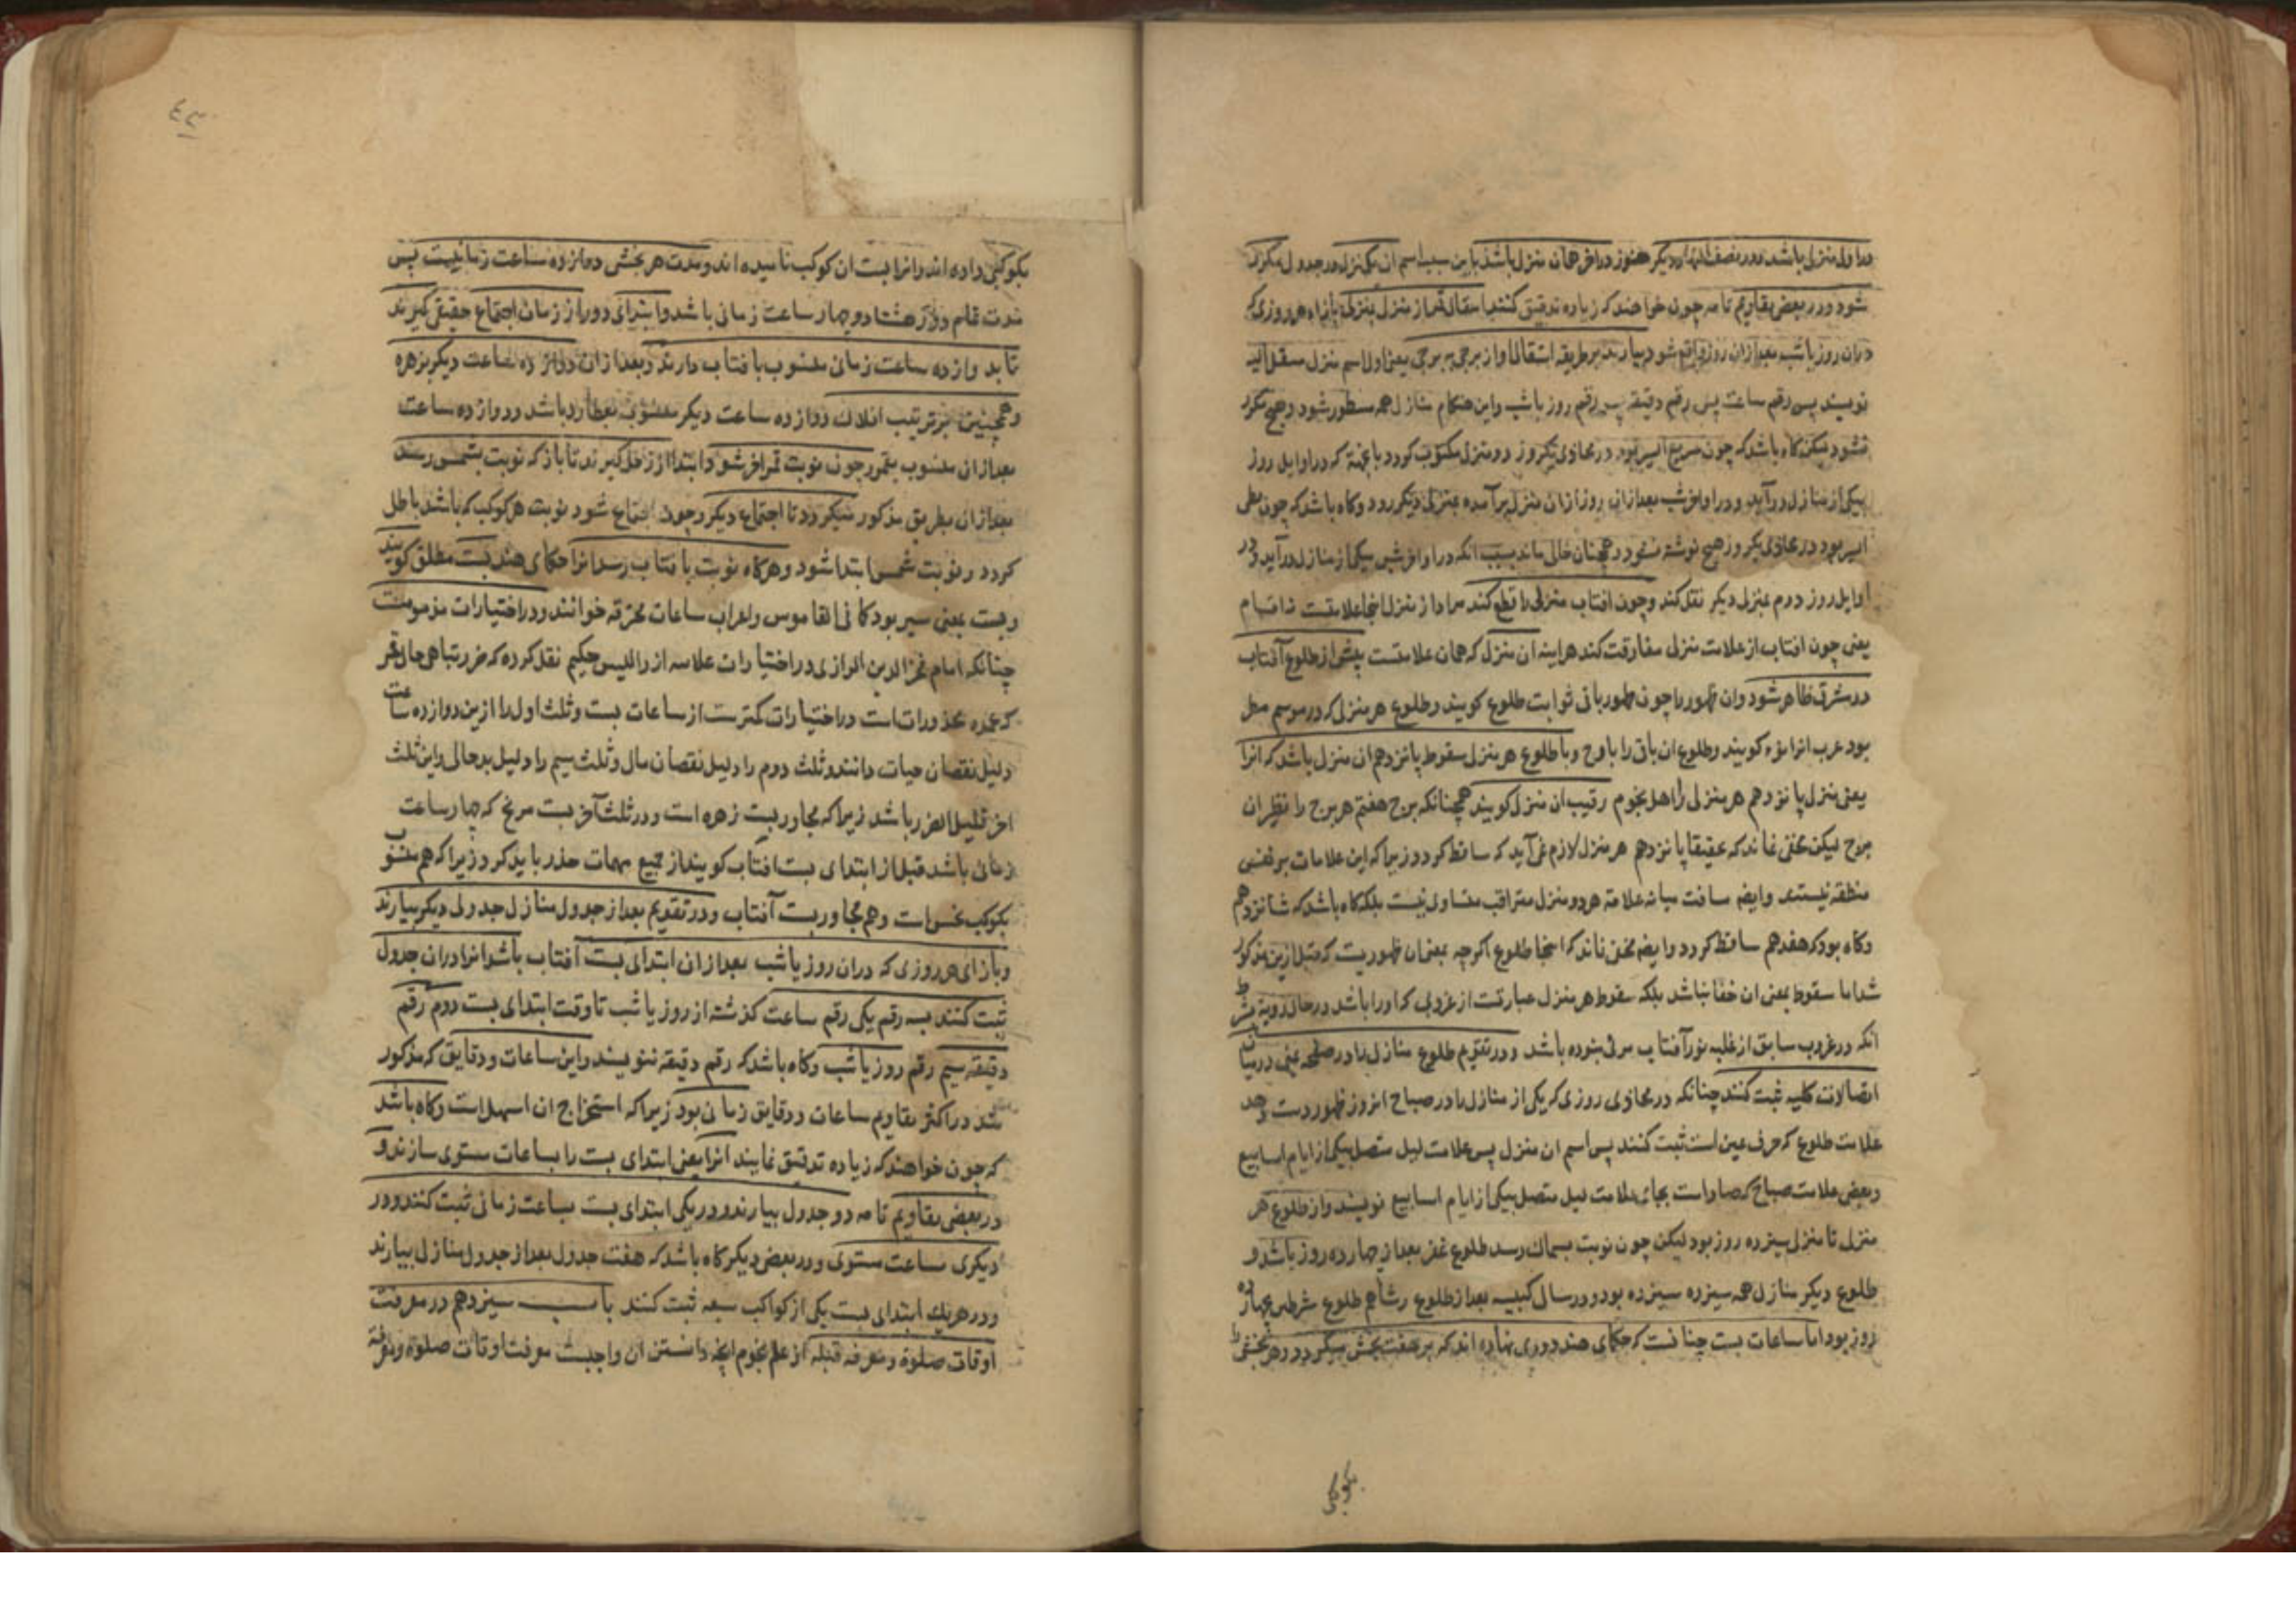 در اول منزلی باشد و در نصف النهار دیگر هنوز در آخر همان منزل باشد باین سبب اسم آن یک منزل در جدول مکرر
شود و در بعض تقاویم تامه چون خواهند که زیاده تدقیق کنند انتقال قمر از منزل بمنزلی بازاء هر روزی که
دران روز یا شب بعد ازان روز واقع شود بیارند بر طریقه انتقالات او از برجی به برجی یعنی اول اسم منزل منتقل الیه
نویسند پس رقم ساعت پس رقم دقیقه پس رقم روز یا شب واین هنکام منازل همه مسطور شود وهیچ مکرر
نشود لیکن کاه باشد که چون سریع السیر بود در محاذی یکروز دو منزل مکتوب کردد باعتبار آنکه در اوایل روز
بیکی از منازل درآید و در اواخر شب بعد ازان روز ازان منزل برآمده بمنزلی دیکر رود وکاه باشد که چون بطی
السیر بود در محاذی یکروز هیچ نوشته نشود وهمچنان خالی ماند بسبب انکه در اواخر شبی بیکی از منازل درآید ودر
اوایل روز دوم بمنزل دیکر نقل کند وچون افتاب منزلی را قطع کند مراد از منزل اینجا علامتست نه اقسام
یعنی چون افتاب از علامت منزل مفارقت کند هراینه ان منزل که همان علامتست پیش از طلوع آفتاب
در مشرق ظاهر شود وان ظهور را چون ظهور باقی ثوابت طلوع کویند وطلوع هر منزلی که در موسم مطر
بود عرب انرا نوء کویند وطلوع ان باقی را بارح وبا طلوع هر منزل سقوط پانزدهم ان منزل باشد که انرا
یعنی منزل پانزدهم هر منزلی را اهل نجوم رقیب ان منزل کویند همچنانکه برج هفتم هر برج را نظیر ان
برج لیکن مخفی نماند که حقیقا پانزدهم هر منزل لازم نمی آید که ساقط کردد زیرا که این علامات بر نفس
منطقه نیستند وایضه مسافت میانه علامة هر دو منزل متراقب متساوی نیست بلکه کاه باشد که شانزدهم
وکاه بود که هفدهم ساقط کردد وایضه مخفی نماند که اینجا طلوع اکرچه بمعنی ان ظهوریست که قبل ازین مذکور
شد اما سقوط بمعنی ان خفا نباشد بلکه سقوط هر منزل عبارتست از غروبی که او را باشد در حال رویة بشرط
انکه در غروب سابق از غلبه نور آفتاب مرئی نبوده باشد ودر تقویم طلوع منازل را در صفحه یمنی در میان
اتصالات کلیه ثبت کنند چنانکه در محاذی روزی که یکی از منازل را در صباح انروز ظهور دست دهد
علامت طلوع که حرف عین است ثبت کنند پس اسم ان منزل پس علامت لیل متصل بیکی از ایام اسابیع
وبعضی علامت صباح که صاد است بجای علامت لیل متصل بیکی از ایام اسابیع نویسند واز طلوع هر
منزل تا منزل سیزده روز بود لیکن چون نوبت بسماک رسد طلوع غفر بعد از چهارده روز باشد و
طلوع دیکر منازل همه سیزده سیزده بود ودر سال کبیسه بعد از طلوع رشا هم طلوع شرطین بچهارده
روز بود اما ساعات بست چنانست که حکمای هند دوری نهاده اند که بر هفت بخش میکردد وهر بخشی را
بکوکبی
٤٣
بکوکبی داده اند وانرا بست ان کوکب نامیده اند ومدت هر بخشی دوازده ساعت زمانیست پس
مدت تمام دور هشتاد وچهار ساعت زمانی باشد وابتدای دور از زمان اجتماع حقیقی کیرند
تا بدوازده ساعت زمانی منسوب بافتاب دارند وبعد ازان دوازده ساعت دیکر بزهره
وهمچنین بترتیب افلاک دوازده ساعت دیکر منسوب بعطارد باشد ودوازده ساعت
بعد ازان منسوب بقمر وچون نوبت قمر اخر شود ابتدا از زحل کیرند تا باز که نوبت بشمس رسد
بعد ازان بطریق مذکور میکردد تا اجتماع دیکر وچون اجتماع شود نوبت هر کوکب که باشد باطل
کردد ونوبت شمس ابتدا شود وهرکاه نوبت بافتاب رسد انرا حکمای هند بست مطلق کویند
وبست بمعنی سیر بود کما فی القاموس واعراب ساعات محترقه خوانند ودر اختیارات مذمومست
چنانکه امام فخر الدین الرازی در اختیارات علامه از والیس حکیم نقل کرده که ضرر تباهی حال قمر
که عمده محذورات است در اختیارات کمترست از ساعات بست وثلث اول را ازین دوازده ساعت
دلیل نقصان حیات دانند وثلث دوم را دلیل نقصان مال وثلث سیم را دلیل بدحالی واین ثلث
اخر قلیل الضرر باشد زیرا که مجاور بست زهره است ودر ثلث آخر بست مریخ که چهار ساعت
زمانی باشد قبل از ابتدای بست افتاب کویند از جمیع مهمات حذر باید کرد زیرا که هم منسوب
بکوکب نحس است وهم مجاور بست آفتاب ودر تقویم بعد از جدول منازل جدولی دیکر بیارند
وبازای هر روزی که دران روز یا شب بعد ازان ابتدای بست آفتاب باشد انرا دران جدول
ثبت کنند بسه رقم یکی رقم ساعت کذشته از روز یا شب تا وقت ابتدای بست دوم رقم
دقیقه سیم رقم روز یا شب وکاه باشد که رقم دقیقه ننویسند واین ساعات ودقایق که مذکور
شد در اکثر تقاویم ساعات ودقایق زمانی بود زیرا که استخراج ان اسهل است وکاه باشد
که چون خواهند که زیاده تدقیق نمایند انرا یعنی ابتدای بست را بساعات مستوی سازند و
در بعضی تقاویم تامه دو جدول بیارند ودر یکی ابتدای بست بساعت زمانی ثبت کنند ودر
دیکری بساعت مستوی ودر بعض دیکر کاه باشد که هفت جدول بعد از جدول منازل بیارند
ودر هر یک ابتدای بست یکی از کواکب سبعه ثبت کنند باب سیزدهم در معرفت
اوقات صلوة ومعرفه قبله از علم نجوم انچه دانستن ان واجبست معرفت اوقات صلوة ومعرفة